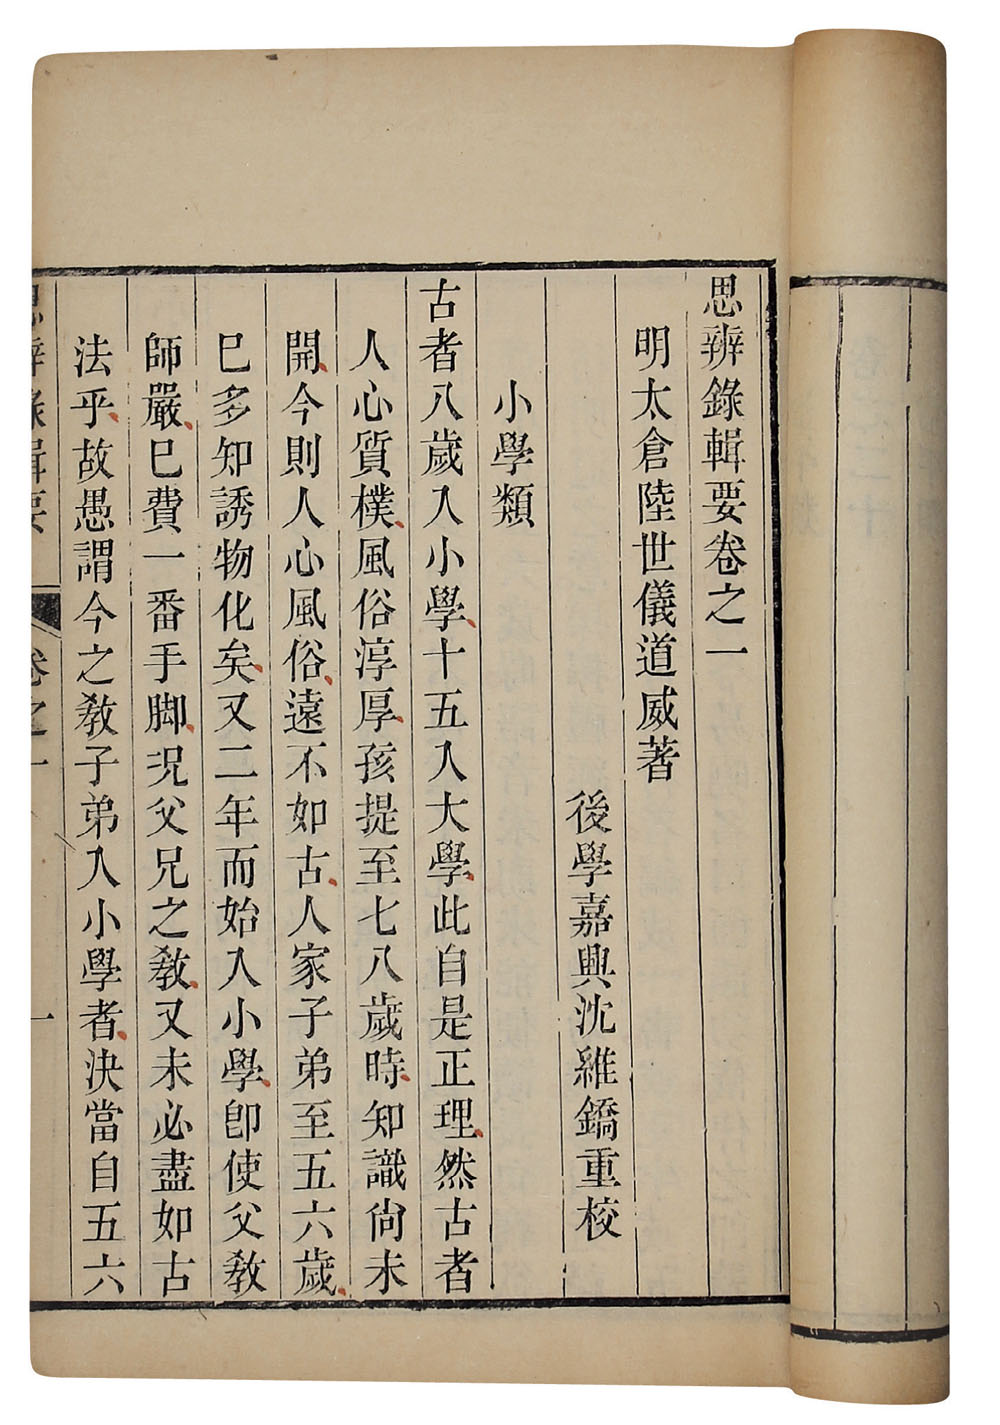 思辨錄輯要卷之一
明太倉陸世儀道威著
後學嘉興沈維鐈重校
小學類
古者八歲入小學十五入大學此自是正理然古者
人心質樸風俗淳厚孩提至七八歲時知識尙未
開今則人心風俗遠不如古人家子弟至五六歲
巳多知誘物化矣又二年而始入小學卽使父敎
師嚴巳費一番手脚况父兄之敎又未必盡如古
法乎故愚謂今之敎子弟入小學者決當自五六
思辨錄輯要 卷之一 一